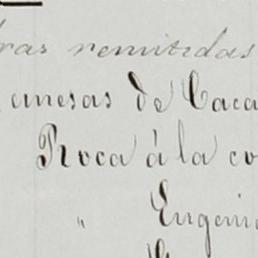 ras remitidas
anesas de Caca
Roca á la co
" Eugenio